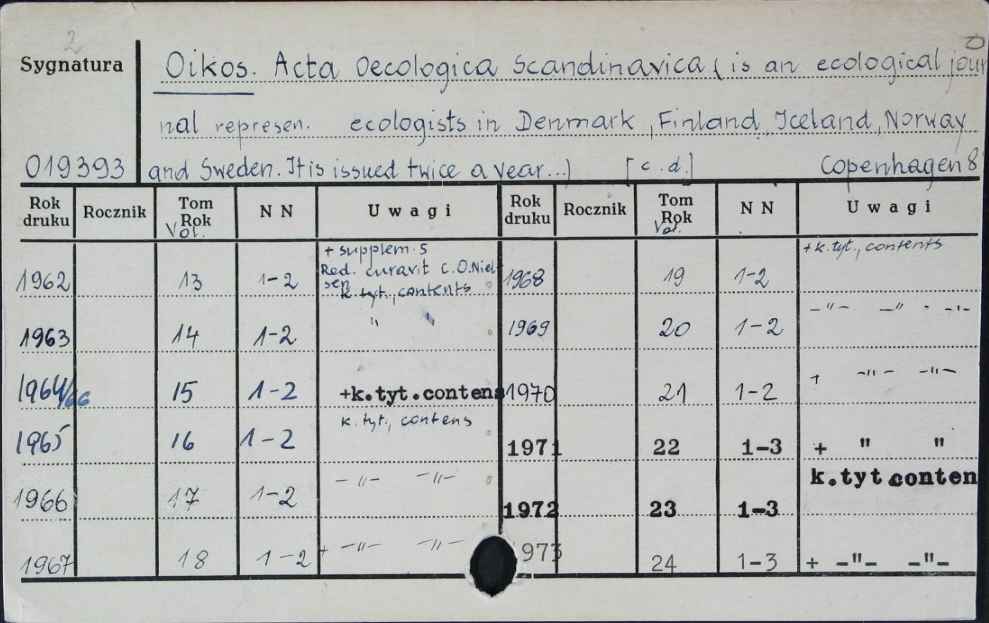 2
Sygnatura Oikos. Acta Oecologica Scandinavica (is an ecological jour
nal represen. ecologists in Denmark, Finland, Iceland, Norway
019393 and Sweden. It is issued twice a year...) [c.d.] Copenhagen 8°
Rok druku Rocznik Tom Rok Vol. N N Uwagi Rok druku Rocznik Tom Rok Vol. N N Uwagi
1962 13 1-2 + supplem. 5 Red. curavit C.O. Nielsen k. tyt., contents 1968 19 1-2 + k. tyt., contents
1963 14 1-2 " " 1969 20 1-2 -"- -"- -"-
1964/66 15 1-2 +k.tyt.contens 1970 21 1-2 + -"- -"-
1965 16 1-2 k. tyt., contens 1971 22 1-3 + " "
1966 17 1-2 -"- -"- 1972 23 1-3 k.tyt.conten
1967 18 1-2 + -"- -"- 1973 24 1-3 + -"- -"-